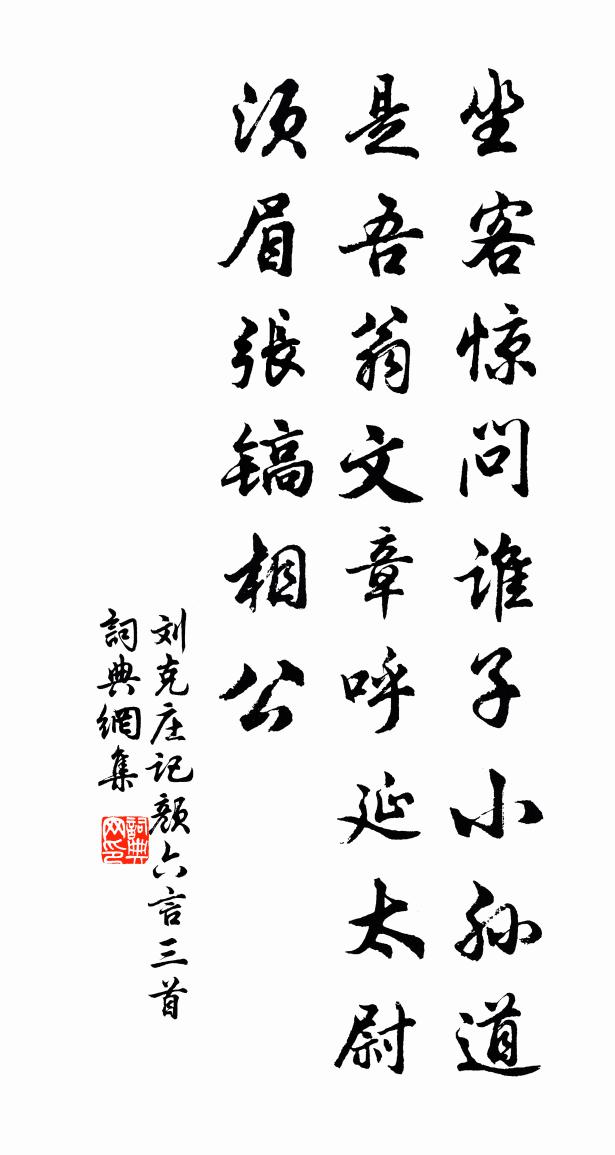 坐客惊问谁子小孙道
是吾翁文章呼延太尉
须眉張镐相公
刘克庄记颜六言三首
詞典網集
詞典网印